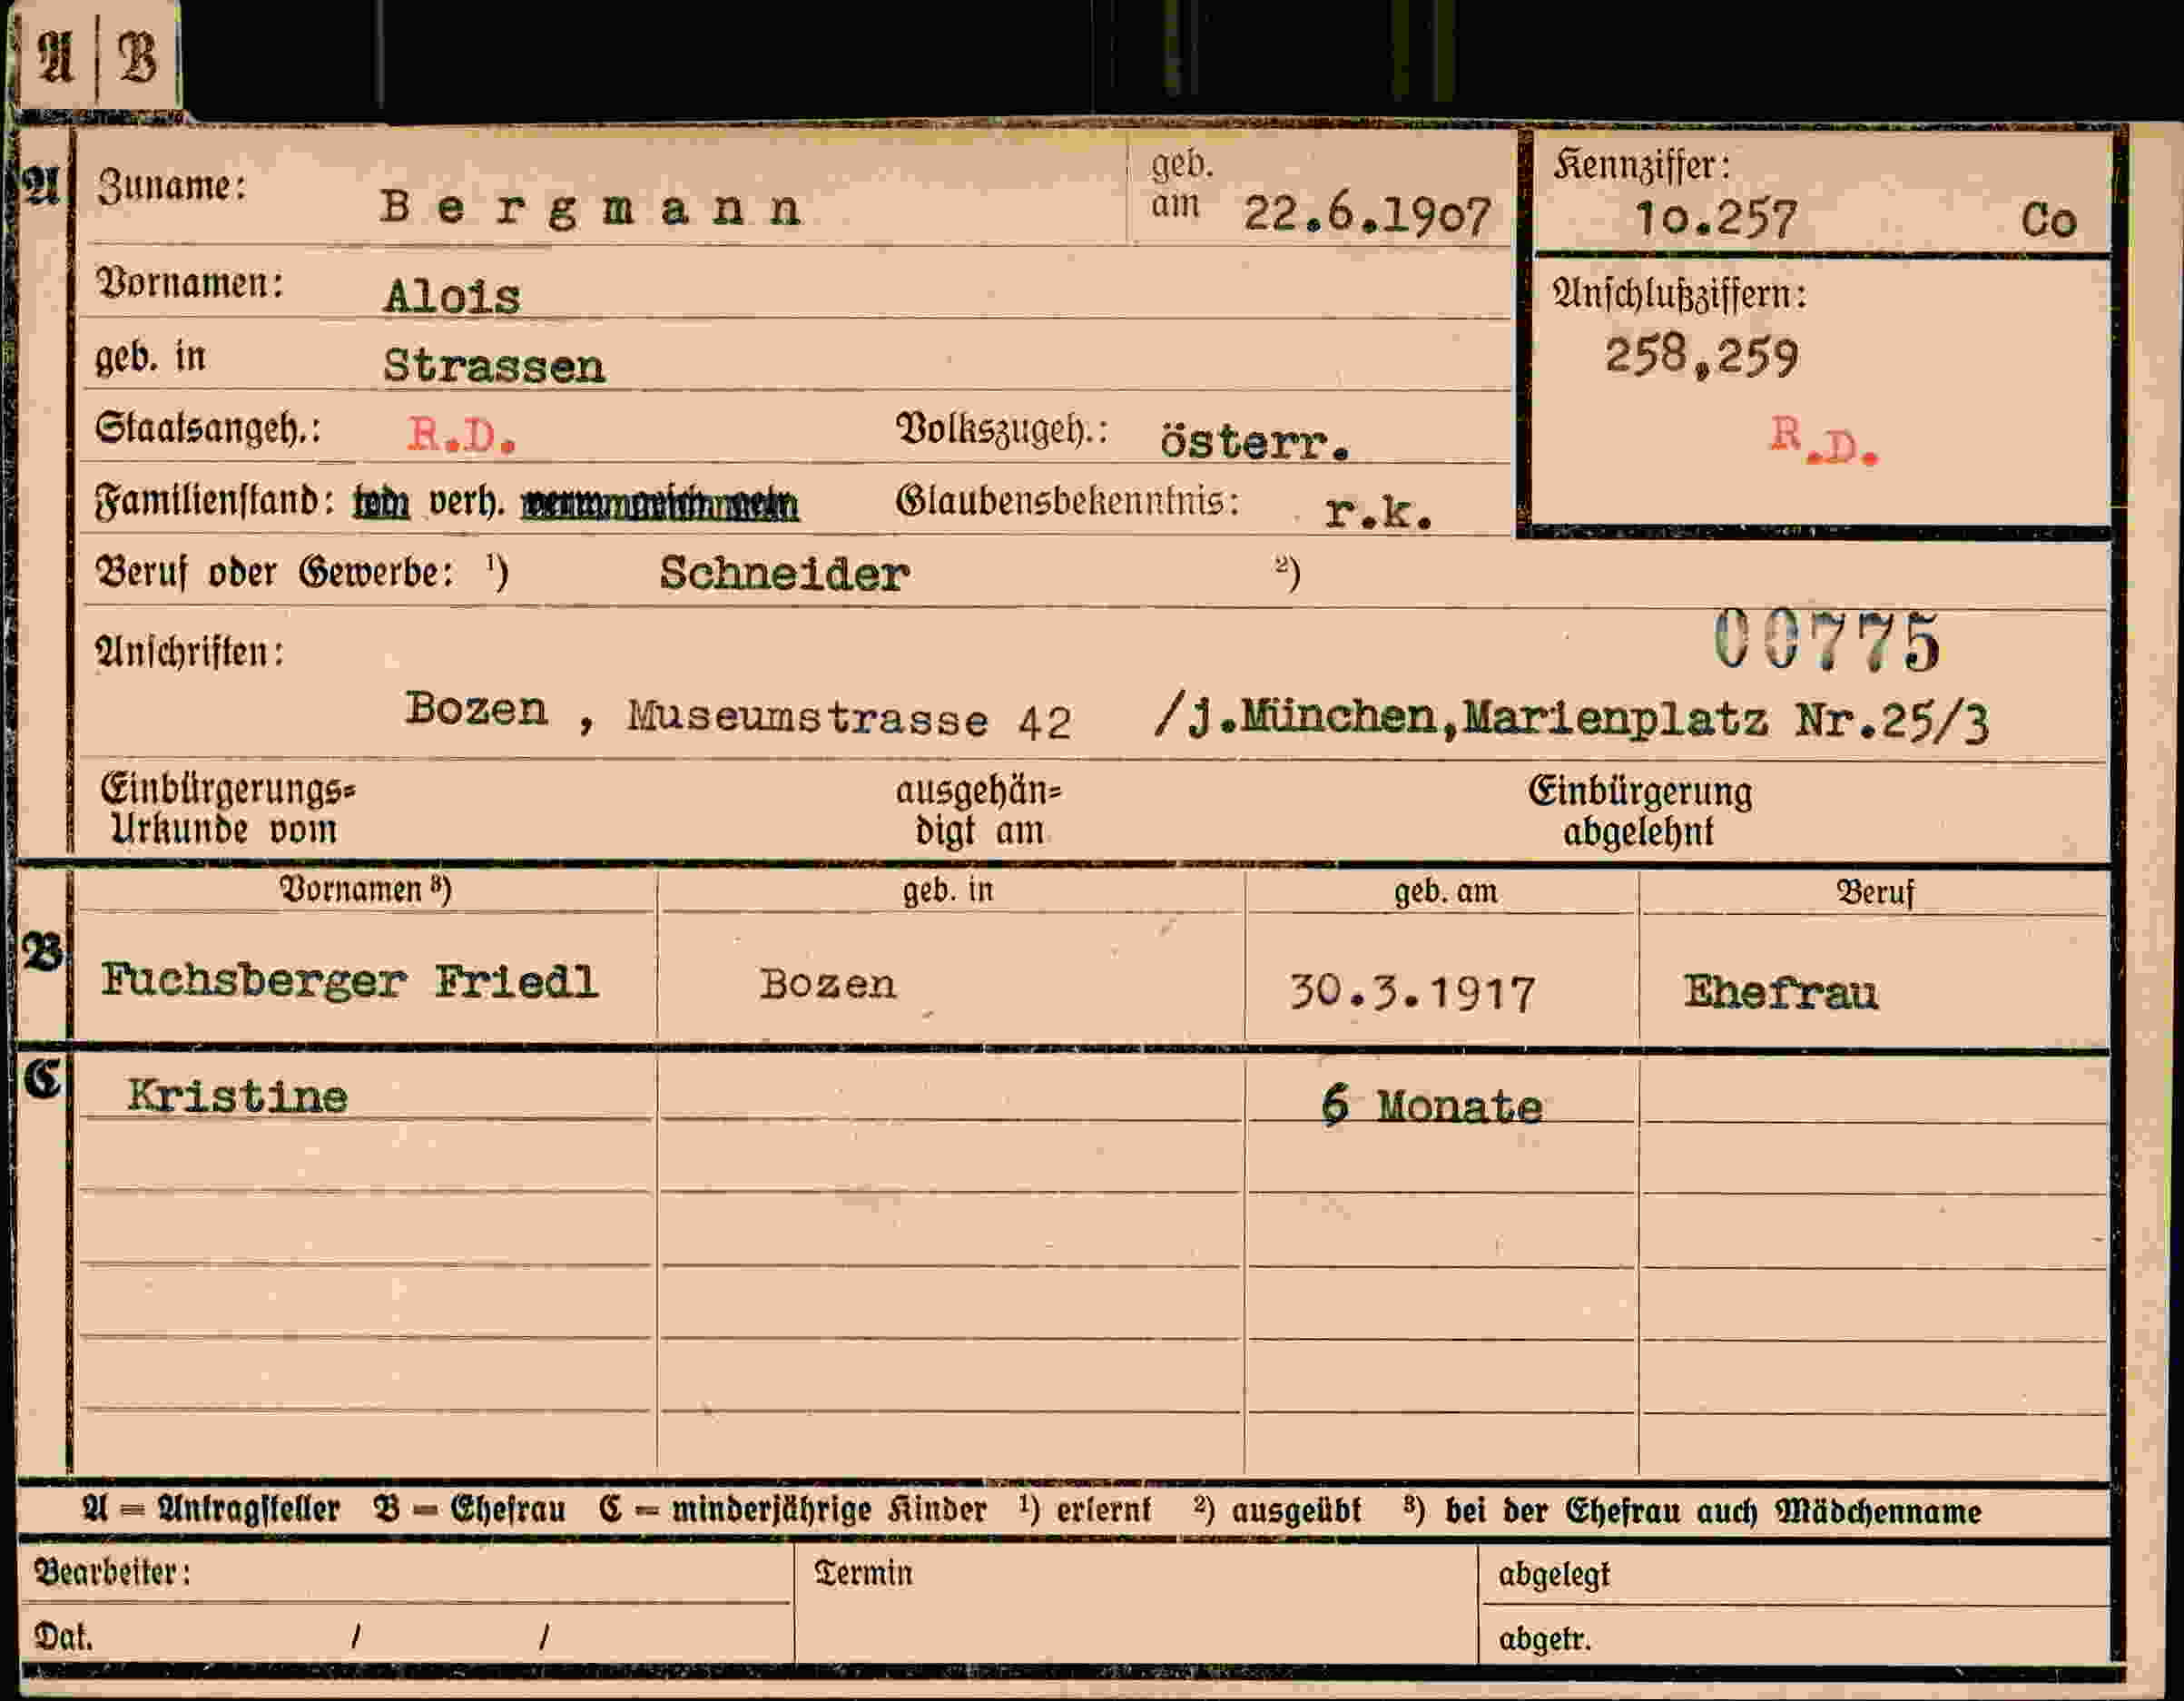 A | B
A Zuname: Bergmann geb. am 22.6.1907 Kennziffer: 10.257 Co
Vornamen: Alois Anschlußziffern:
geb. in Strassen 258,259
Staatsangeh.: R.D. Volkszugeh.: österr. R.D.
Familienstand: verh. Glaubensbekenntnis: r.k.
Beruf oder Gewerbe: ¹) Schneider ²)
00775
Anschriften:
Bozen , Museumstrasse 42 /j.München,Marienplatz Nr.25/3
Einbürgerungs= ausgehän= Einbürgerung
Urkunde vom digt am abgelehnt
Vornamen ³) geb. in geb. am Beruf
B Fuchsberger Friedl Bozen 30.3.1917 Ehefrau
C Kristine 6 Monate
A = Antragsteller B = Ehefrau C = minderjährige Kinder ¹) erlernt ²) ausgeübt ³) bei der Ehefrau auch Mädchenname
Bearbeiter: Termin abgelegt
Dat. / / abgetr.